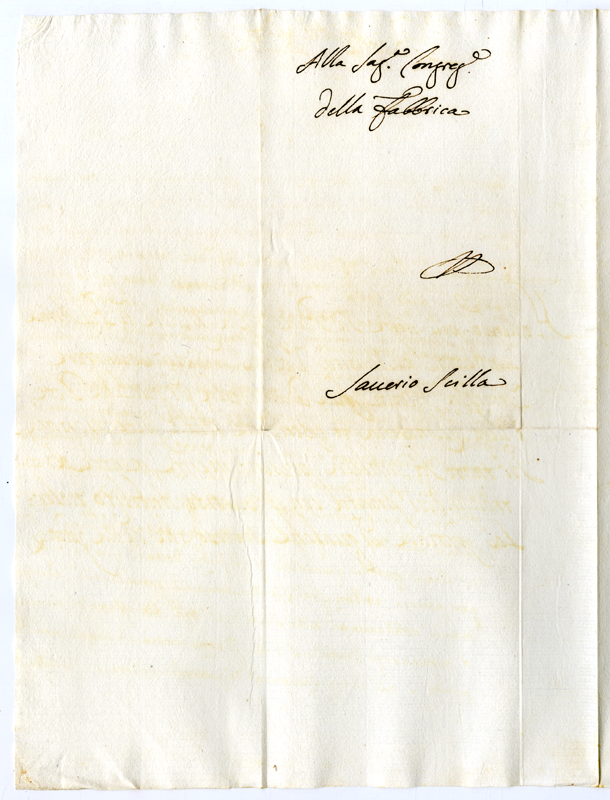 Alla Sag.ª Congreg.ª
della Fabbrica
Saverio Scilla